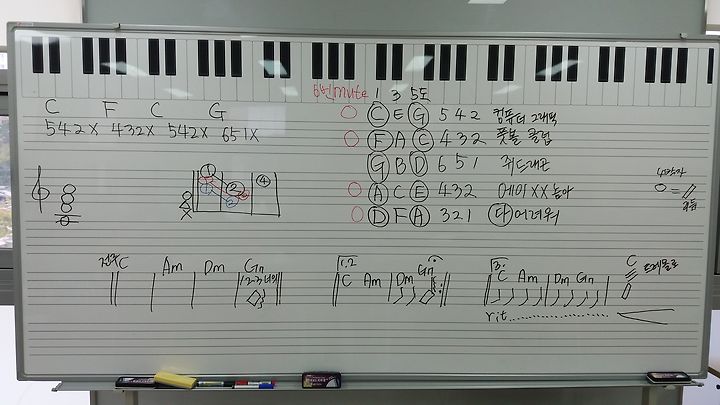 6번mute 1 3 5도
C F C G
542X 432X 542X 651X
C E G 542 컴퓨터 그래픽
F A C 432 풋볼 클럽
G B D 651 쥐드래곤
A C E 432 에이XX 놈아
D F A 321 다 어려워
① ② ④
X
4박자
전주 C Am Dm G7
1·2·3 너의
1.2 C Am Dm G7
3. C Am Dm G7 C 트레몰로
rit.